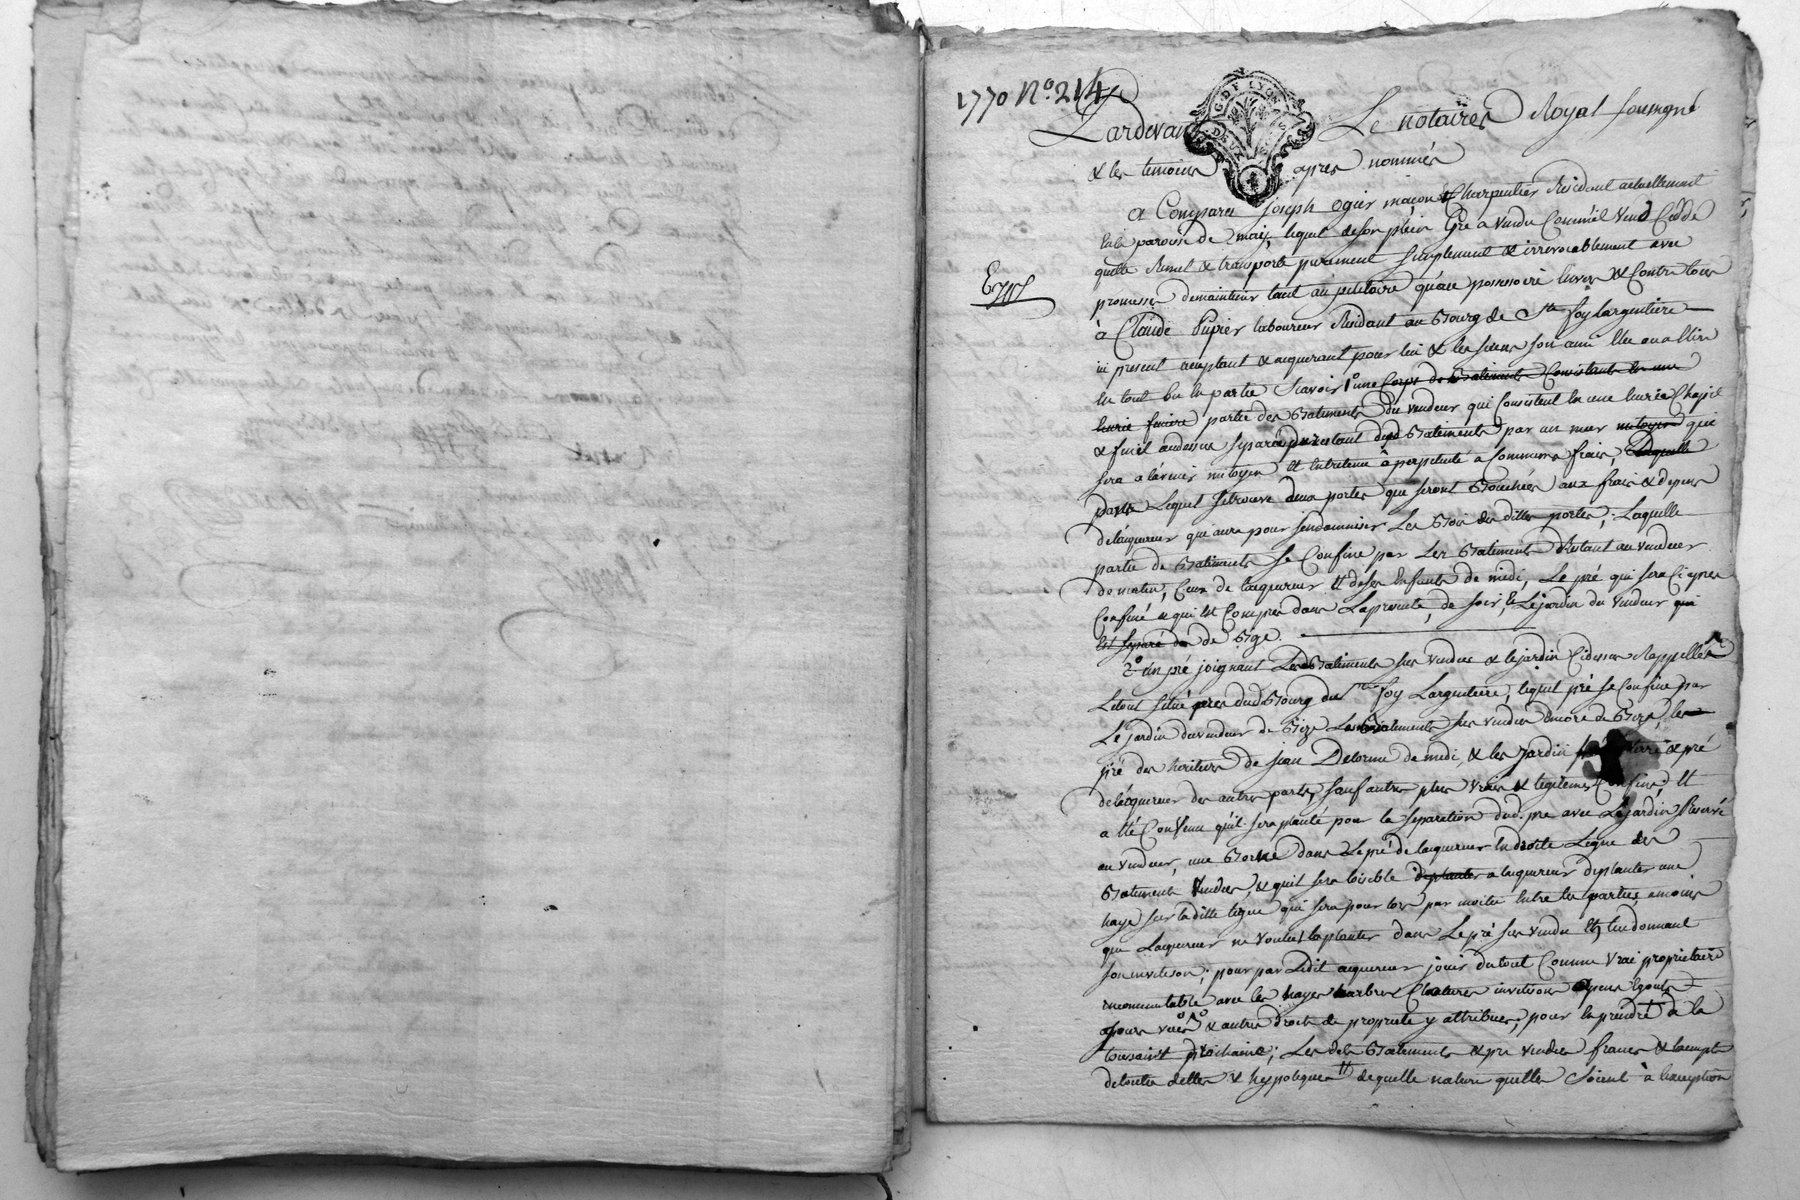 1770 N.º 214
Pardevant Le notaires Royal soussigné
G.DE LYON
DEUX SOLS
& les temoins apres nommés
a Comparu joseph ogier maçon & Charpentier Residant actuellement
en la paroisse de meis, lequel de son plein Gré a vendu Comme il vend Cedde
quitte Remet & transporte purement simplement & irrevocablement avec
Expé
promesse de maintenir tant au petitoire qu'au possessoire envers & Contre tous
à Claude Pupier laboureur Residant au Bourg de Ste foy Largentiere
ici present acceptant & acquerant pour lui & les siens son ami Elu ou a Elire
en tout ou en partie scavoir 1º une Corps de Batiments Consistants en une
Ecurie feniere partie des Batiments du vendeur qui Consistent en une Ecurie Chapit
& feniel audessus separé du restant des d Batiments par un mur mitoyen qui
sera a lavenir mitoyen et Entretenu à perpetuité a Communs frais, Laquelle
dans Lequel se trouve deux portes qui seront Bouchées aux frais & depens
de lacquereur qui aura pour sendommiser Les Bois des dittes portes; Laquelle
partie de Batiments se Confine par Les Batiments Restant au vendeur
de matin, Ceux de lacquereur et de ses Enfants de midi, Le pré qui sera Ci apres
Confiné & qui est Compris dans La presente, de soir, & Le jardin du vendeur qui
est separé de de Bize.
2º Un pré joignant Les Batiments sus vendus & le jardin Cidessus Rappellés
Letout situé pres dud Bourg de Ste foy Largentiere, lequel pré se Confine par
Le jardin du vendeur de Bize Les Batiments sus vendus Encore de Bize, les
pré des heritiers de jean Delorme de midi, & les jardin & pré
de lacquereur des autres parts, sauf autres plus vrais & legitimes Confins; et
a été Convenu qu'il sera planté pour la separation dud. pre avec Le jardin Reservé
au vendeur, une Borne dans Le pré de lacquereur en droite Ligne des
Batiments vendus, & quil sera loisible deplanter a lacquereur de planter une
haye sur la ditte ligne qui sera pour lors par moitie Entre les parties amoins
que Lacquereur ne voulut la planter dans Le pré sus vendu En lui donnant
son invetison; pour par Ledit acquereur jouir du tout Comme vrai proprietaire
incommutable avec les hayes arbres Clotures invetisons apens Egouts
jours vues & autres droits de proprieté y attribués, pour En prendre à la
toussaint prochaine; Les dits Batiments & pre vendus francs & Exempts
de toutes dettes & hypoteques de quelle nature quelles soient à lexception